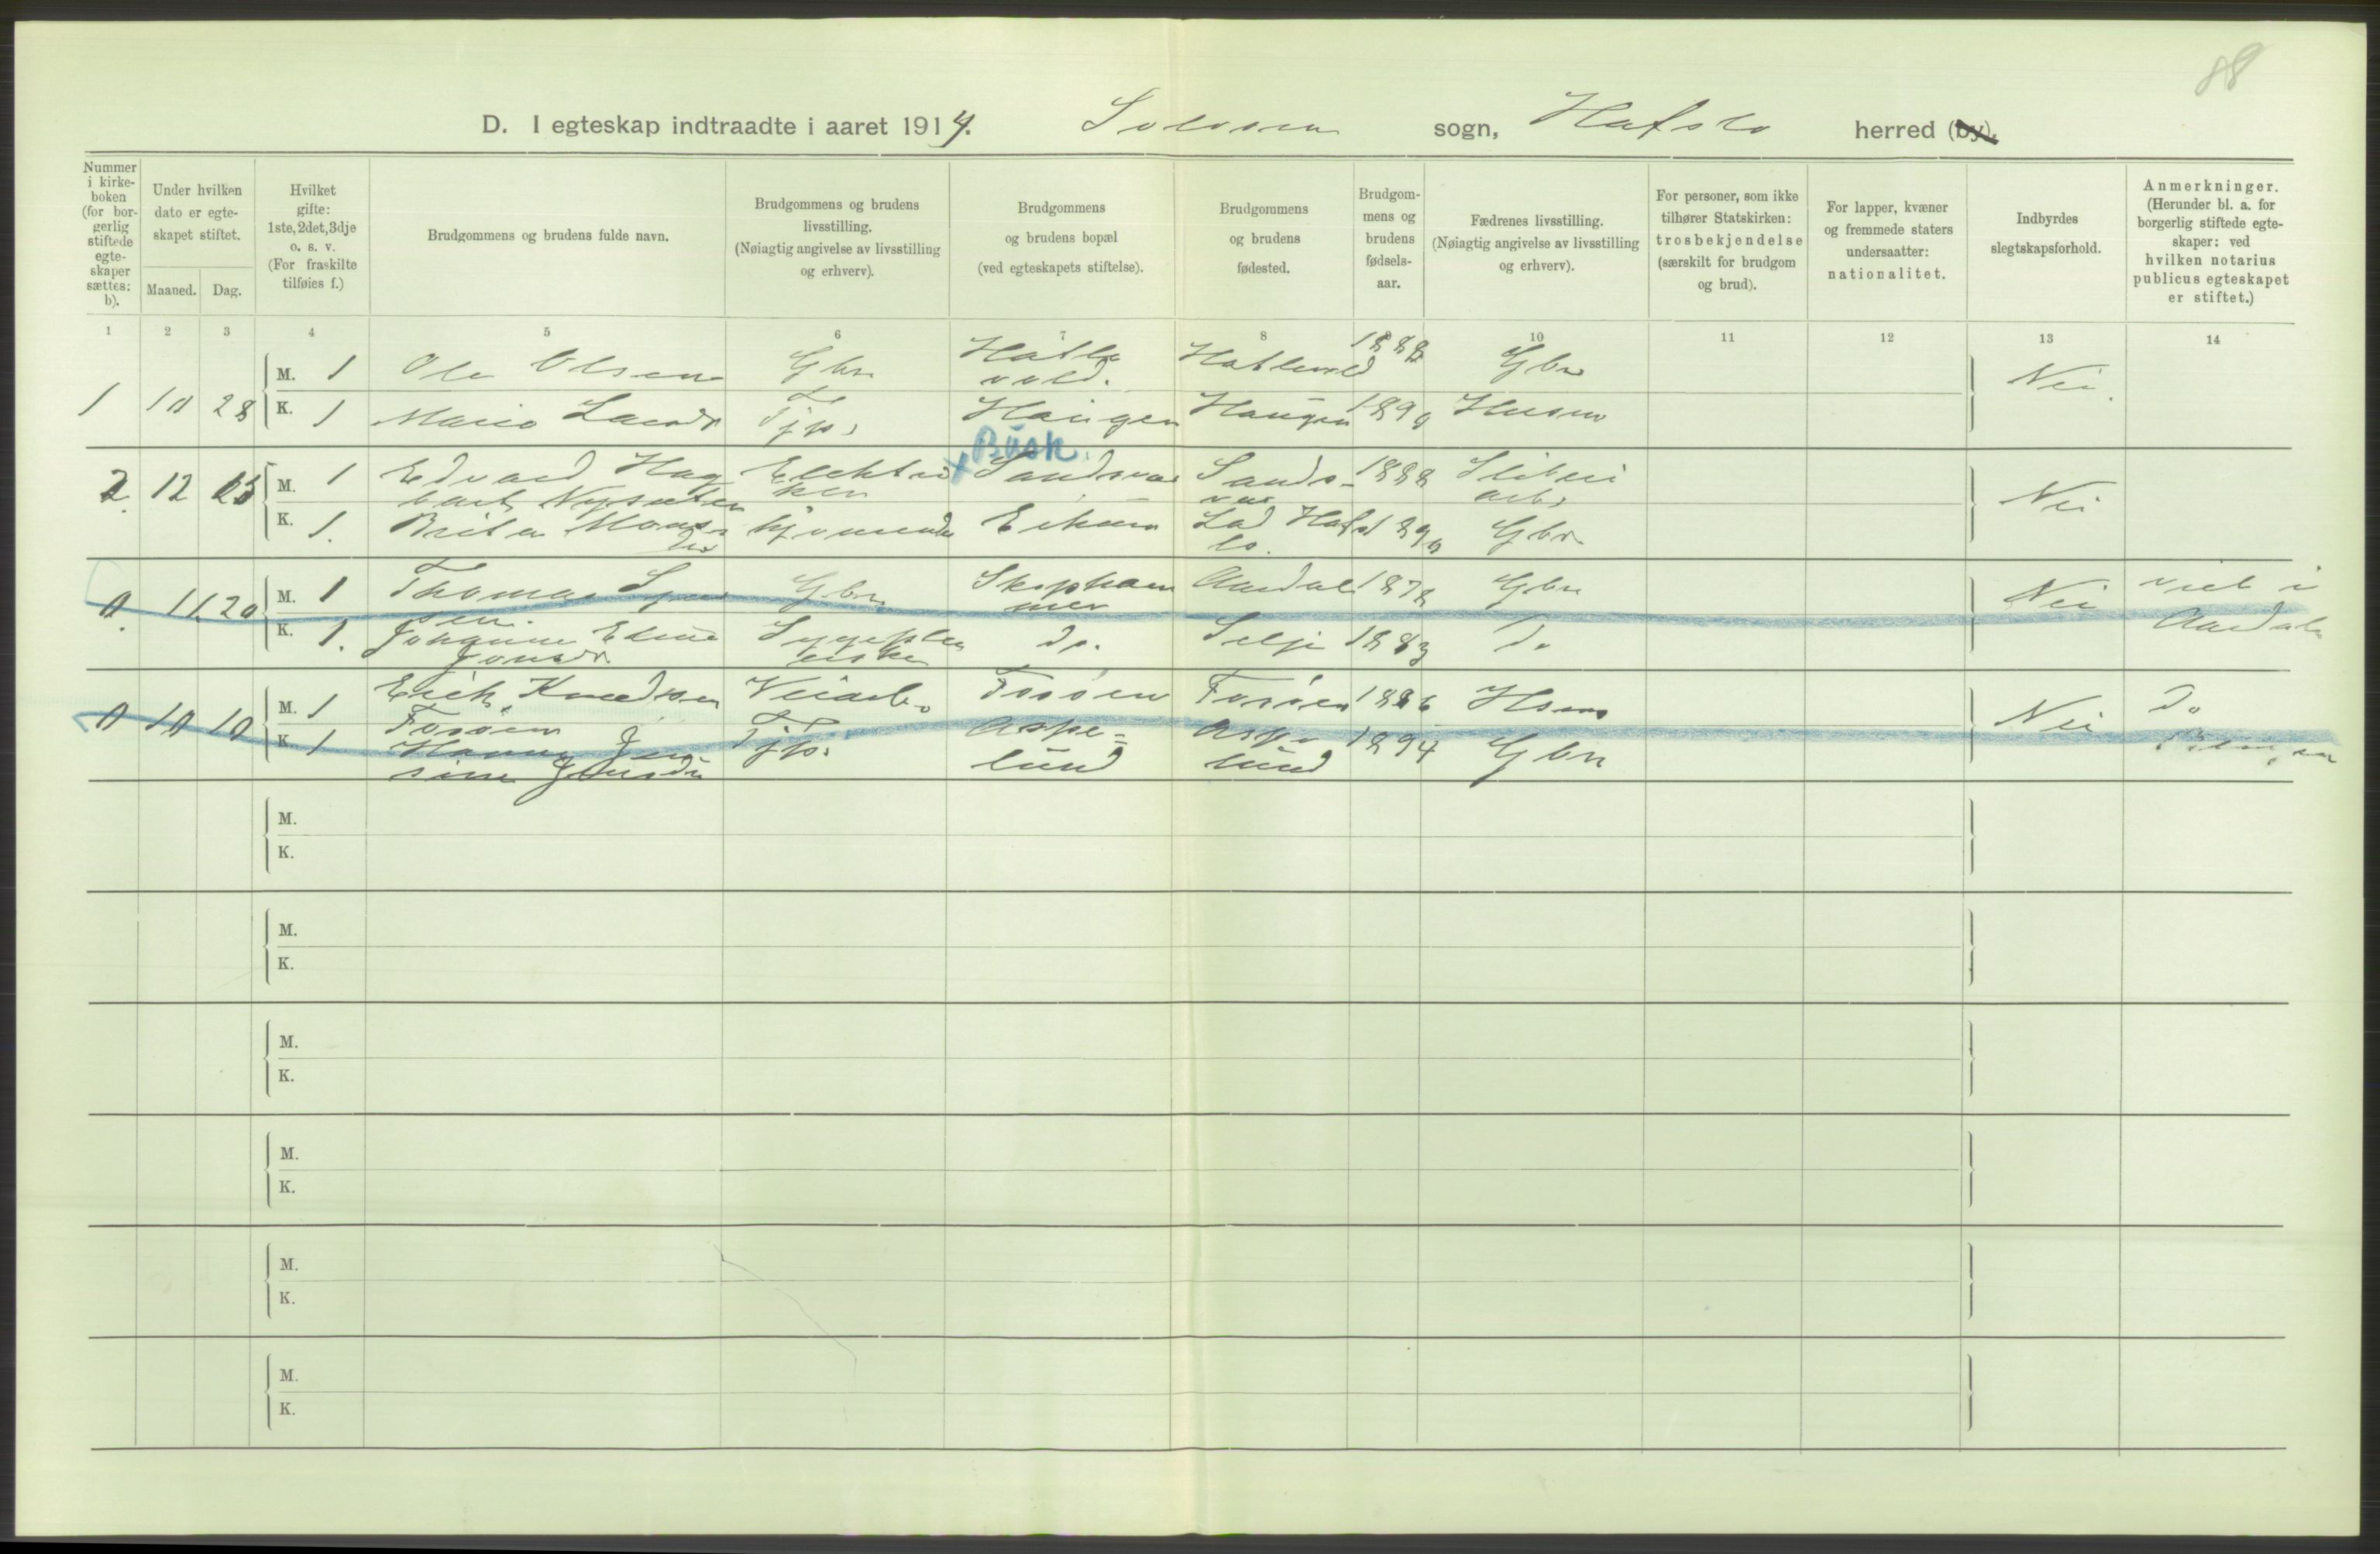 88
D. I egteskap indtraadte i aaret 1914. Solvorn sogn, Hafslo herred (by).
Nummer i kirkeboken (for borgerlig stiftede egteskaper sættes: b).
Under hvilken dato er egteskapet stiftet.
Maaned. Dag.
Hvilket gifte: 1ste, 2det, 3dje o. s. v. (For fraskilte tilføies f.)
Brudgommens og brudens fulde navn.
Brudgommens og brudens livsstilling. (Nøiagtig angivelse av livsstilling og erhverv).
Brudgommens og brudens bopæl (ved egteskapets stiftelse).
Brudgommens og brudens fødested.
Brudgommens og brudens fødselsaar.
Fædrenes livsstilling. (Nøiagtig angivelse av livsstilling og erhverv).
For personer, som ikke tilhører Statskirken: trosbekjendelse (særskilt for brudgom og brud).
For lapper, kvæner og fremmede staters undersaatter: nationalitet.
Indbyrdes slegtskapsforhold.
Anmerkninger. (Herunder bl. a. for borgerlig stiftede egteskaper: ved hvilken notarius publicus egteskapet er stiftet.)
1 2 3 4 5 6 7 8 9 10 11 12 13 14
1 10 28 M. 1 Ole Olsen Gbr Hatlevold. Hatlevold 1888 Gbr Nei.
K. 1 Marie Larsdr Tjp. Haugen Haugen 1890 Husm
Busk.
2. 12 M. 1 Edvard Hagbart Nysæter Elektriker x Sandsvær Sandsvær 1888 Sliberiarb. Nei
K. 1. Brita Monsdr hjemme Eikum Lad Hafslo. 1890 Gbr
0. 11 20 M. 1 Thomas Gbr. Skiphammer Aardal 1878 Gbr Nei viet i Aardal
K. 1. Johanne Eline Jonsdr Sygepleierske do. Selje 1883 do
0 10 10 M. 1 Erik Knudsen Fosøen Veiarb. Fosøen Fosøen 1886 Hsm Nei do
K. 1 Hanna Jensine Jensdr Tjp. Aspelund Aspelund 1894 Gbr
M.
K.
M.
K.
M.
K.
M.
K.
M.
K.
M.
K.